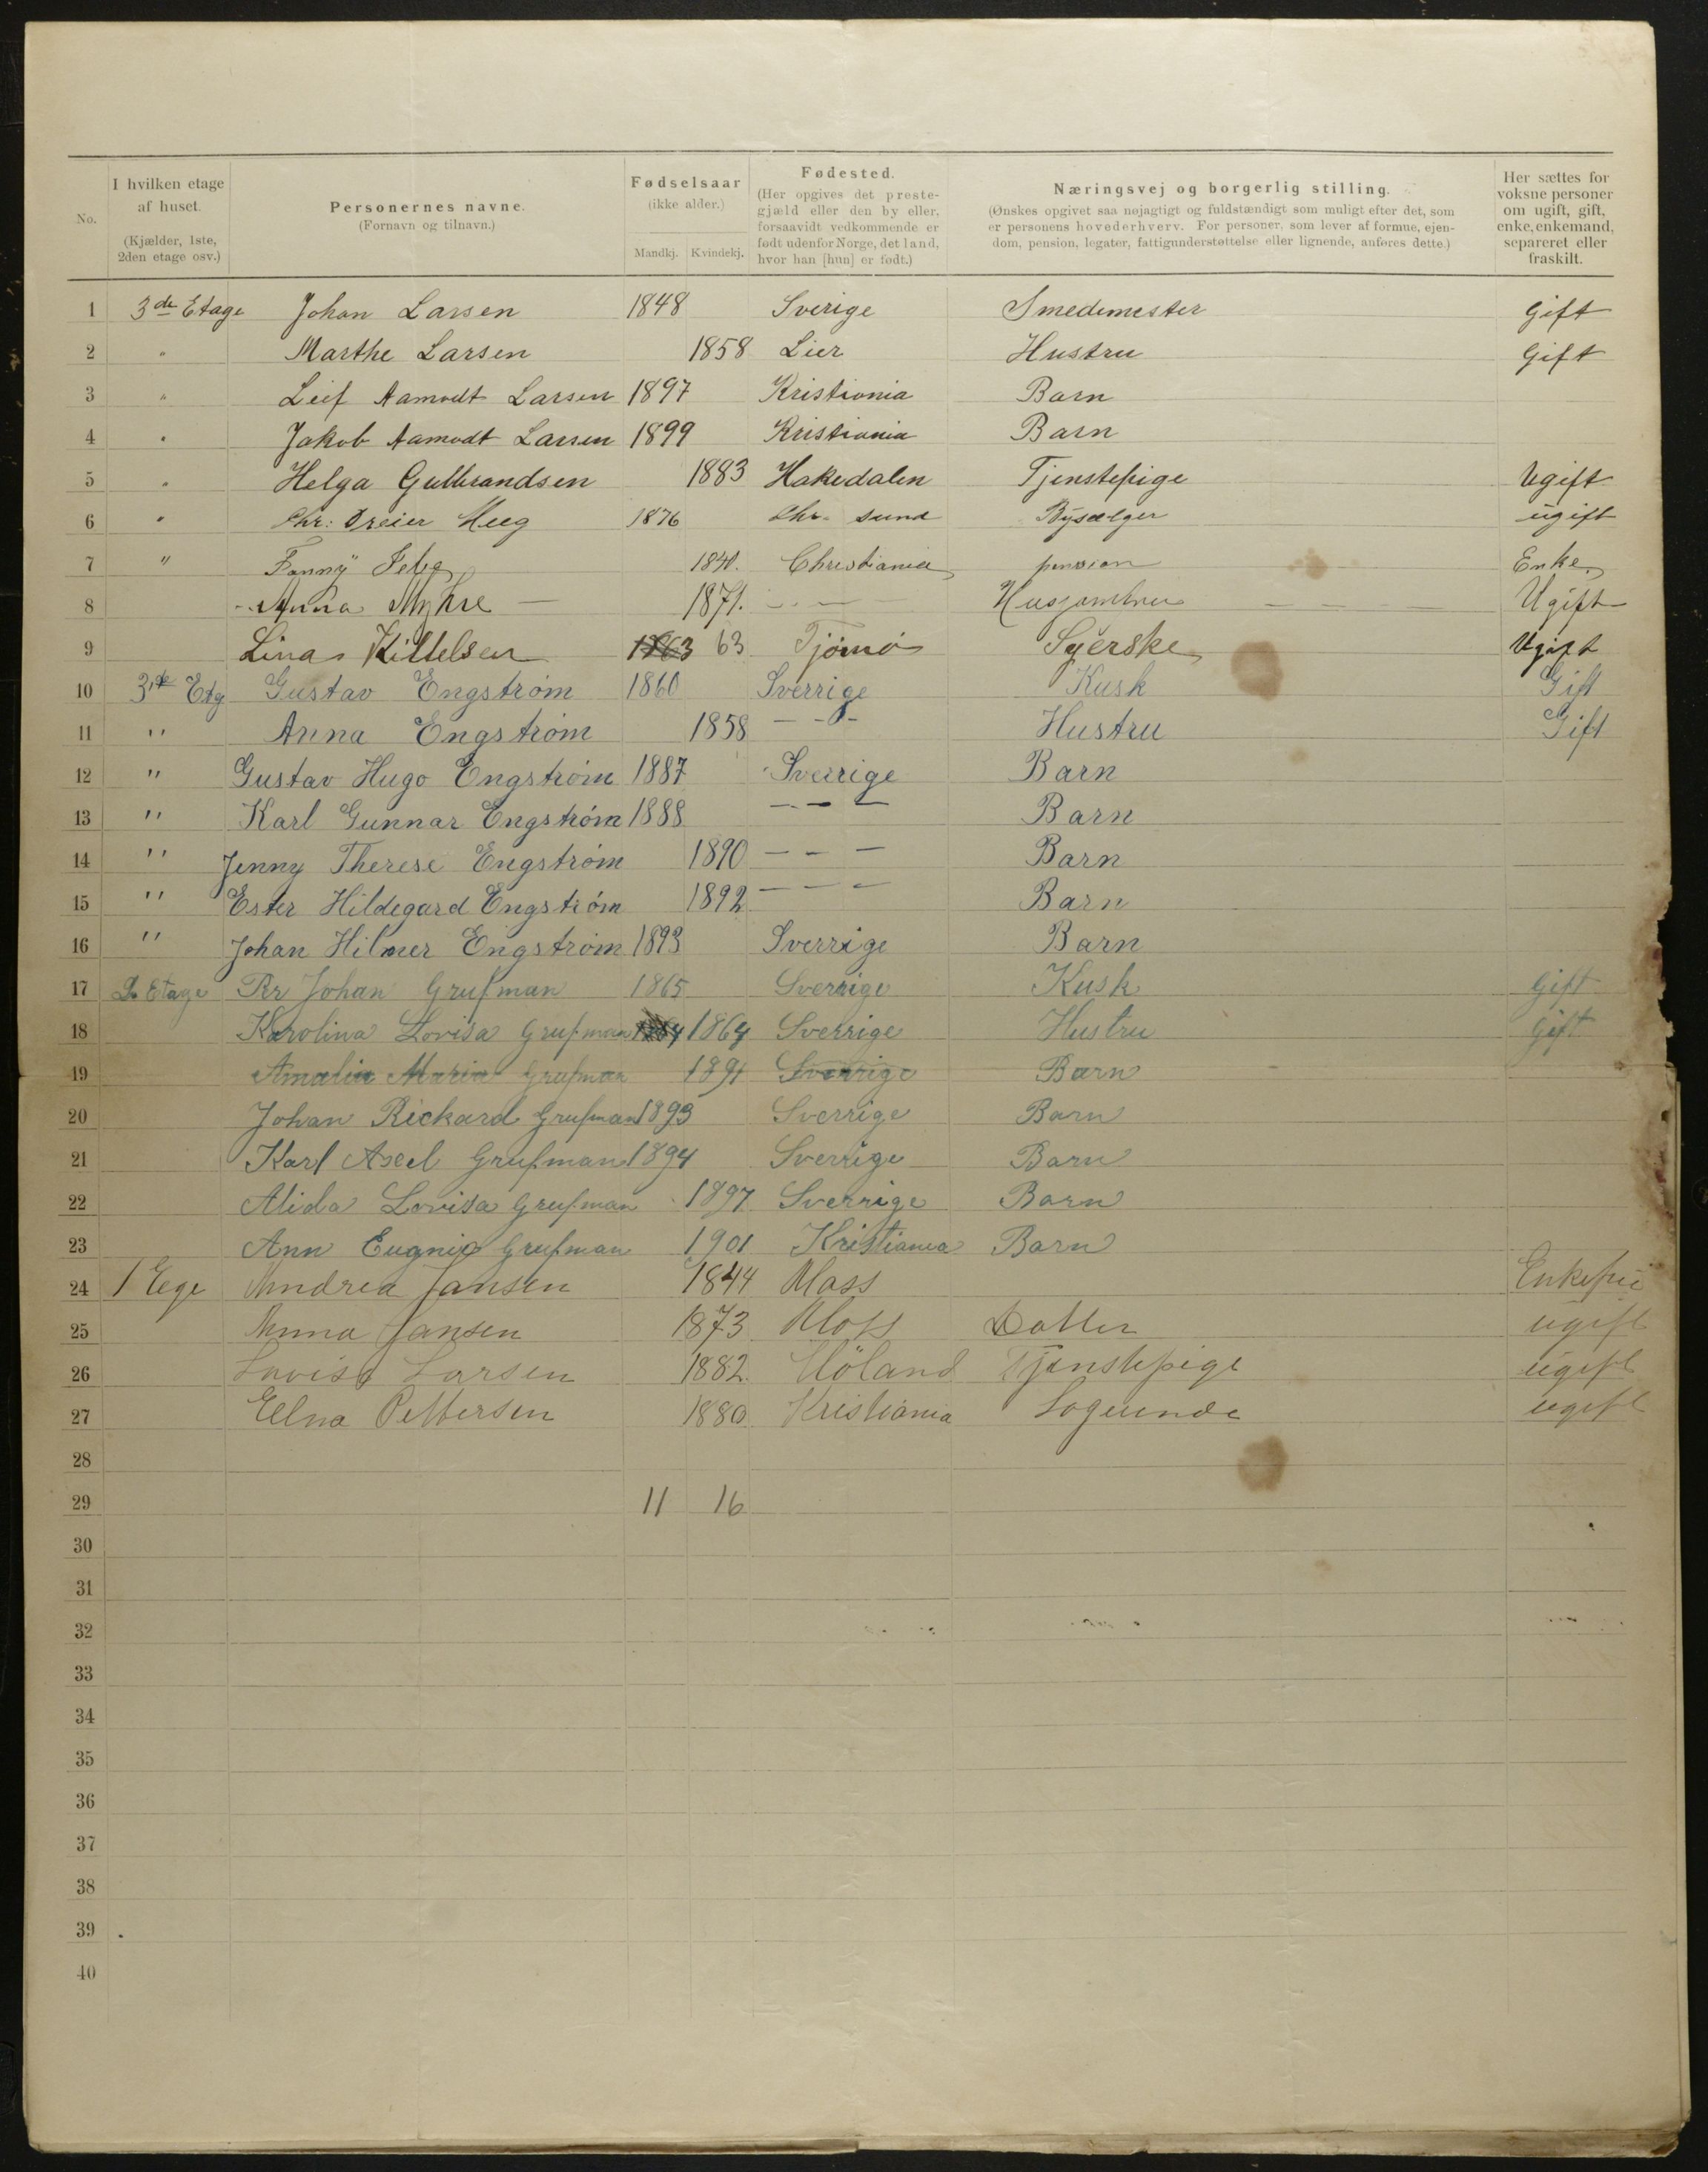 No.
I hvilken etage
af huset.
(Kjælder, 1ste,
2den etage osv.)
Personernes navne.
(Fornavn og tilnavn.)
Fødselsaar
(ikke alder.)
Mandkj. Kvindekj.
Fødested.
(Her opgives det preste-
gjæld eller den by eller,
forsaavidt vedkommende er
født udenfor Norge, det land,
hvor han [hun] er født.)
Næringsvej og borgerlig stilling.
(Ønskes opgivet saa nøjagtigt og fuldstændigt som muligt efter det, som
er personens hovederhverv. For personer, som lever af formue, ejen-
dom, pension, legater, fattigunderstøttelse eller lignende, anføres dette.)
Her sættes for
voksne personer
om ugift, gift,
enke, enkemand,
separeret eller
fraskilt.
1 3de Etage Johan Larsen 1848 Sverige Smedemester Gift
2 " Marthe Larsen 1858 Lier Hustru Gift
3 " Leif Aamodt Larsen 1897 Kristiania Barn
4 " Jakob Aamodt Larsen 1899 Kristiania Barn
5 " Helga Gulbrandsen 1883 Hakedalen Tjenstepige Ugift
6 " Chr: Dreier 1876 Chr. sund Bysælger ugift
7 " Fanny 1841. Christiania pension Enke
8 Anna Myhre — 1871. - — Ugift
9 Lina Kittelsen 1863 63 Tjømø Syerske Ugift
10 3de Etg Gustav Engstrøm 1860 Sverrige Kusk Gift
11 " Anna Engstrøm 1858 - - - Hustru Gift
12 " Gustav Hugo Engstrøm 1887 Sverrige Barn
13 " Karl Gunnar Engstrøm 1888 - - - Barn
14 " Jenny Therese Engstrøm 1890 - - - Barn
15 " Ester Hildegard Engstrøm 1892 - - - Barn
16 " Johan Hilmer Engstrøm 1893 Sverrige Barn
17 2 Etage Per Johan Grufman 1865 Sverrige Kusk Gift
18 Karolina Lovisa Grufman 1864 1864 Sverrige Hustru Gift
19 Amalia Maria Grufman 1891 Sverrige Barn
20 Johan Rickard Grufman 1893 Sverrige Barn
21 Karl Axel Grufman 1894 Sverrige Barn
22 Alida Lovisa Grufman 1897 Sverrige Barn
23 Ann Eugnie Grufman 1901 Kristiania Barn
24 1 Ege Andrea Jansen 1844 Moss Enkefru
25 Anna Jansen 1873 Moss Datter ugift
26 Lovise Larsen 1882 Höland Tjenstepige ugift
27 Elna Pettersen 1880 Kristiania Logerende ugift
28
29 11 16
30
31
32
33
34
35
36
37
38
39
40